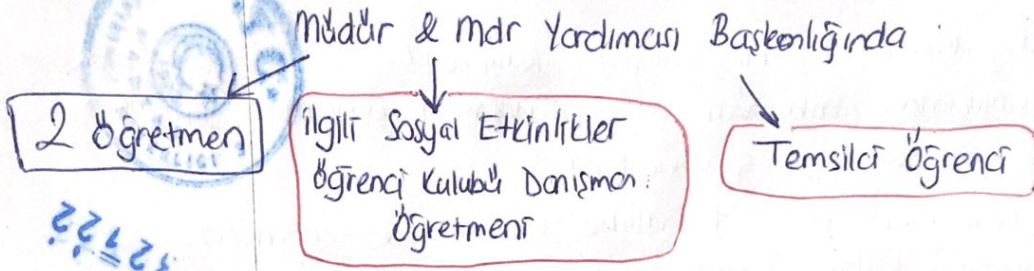 Müdür & Mdr Yardımcısı Başkanlığında :
2 Öğretmen
İlgili Sosyal Etkinlikler
Öğrenci Kulübü Danışman
Öğretmeni
Temsilci Öğrenci